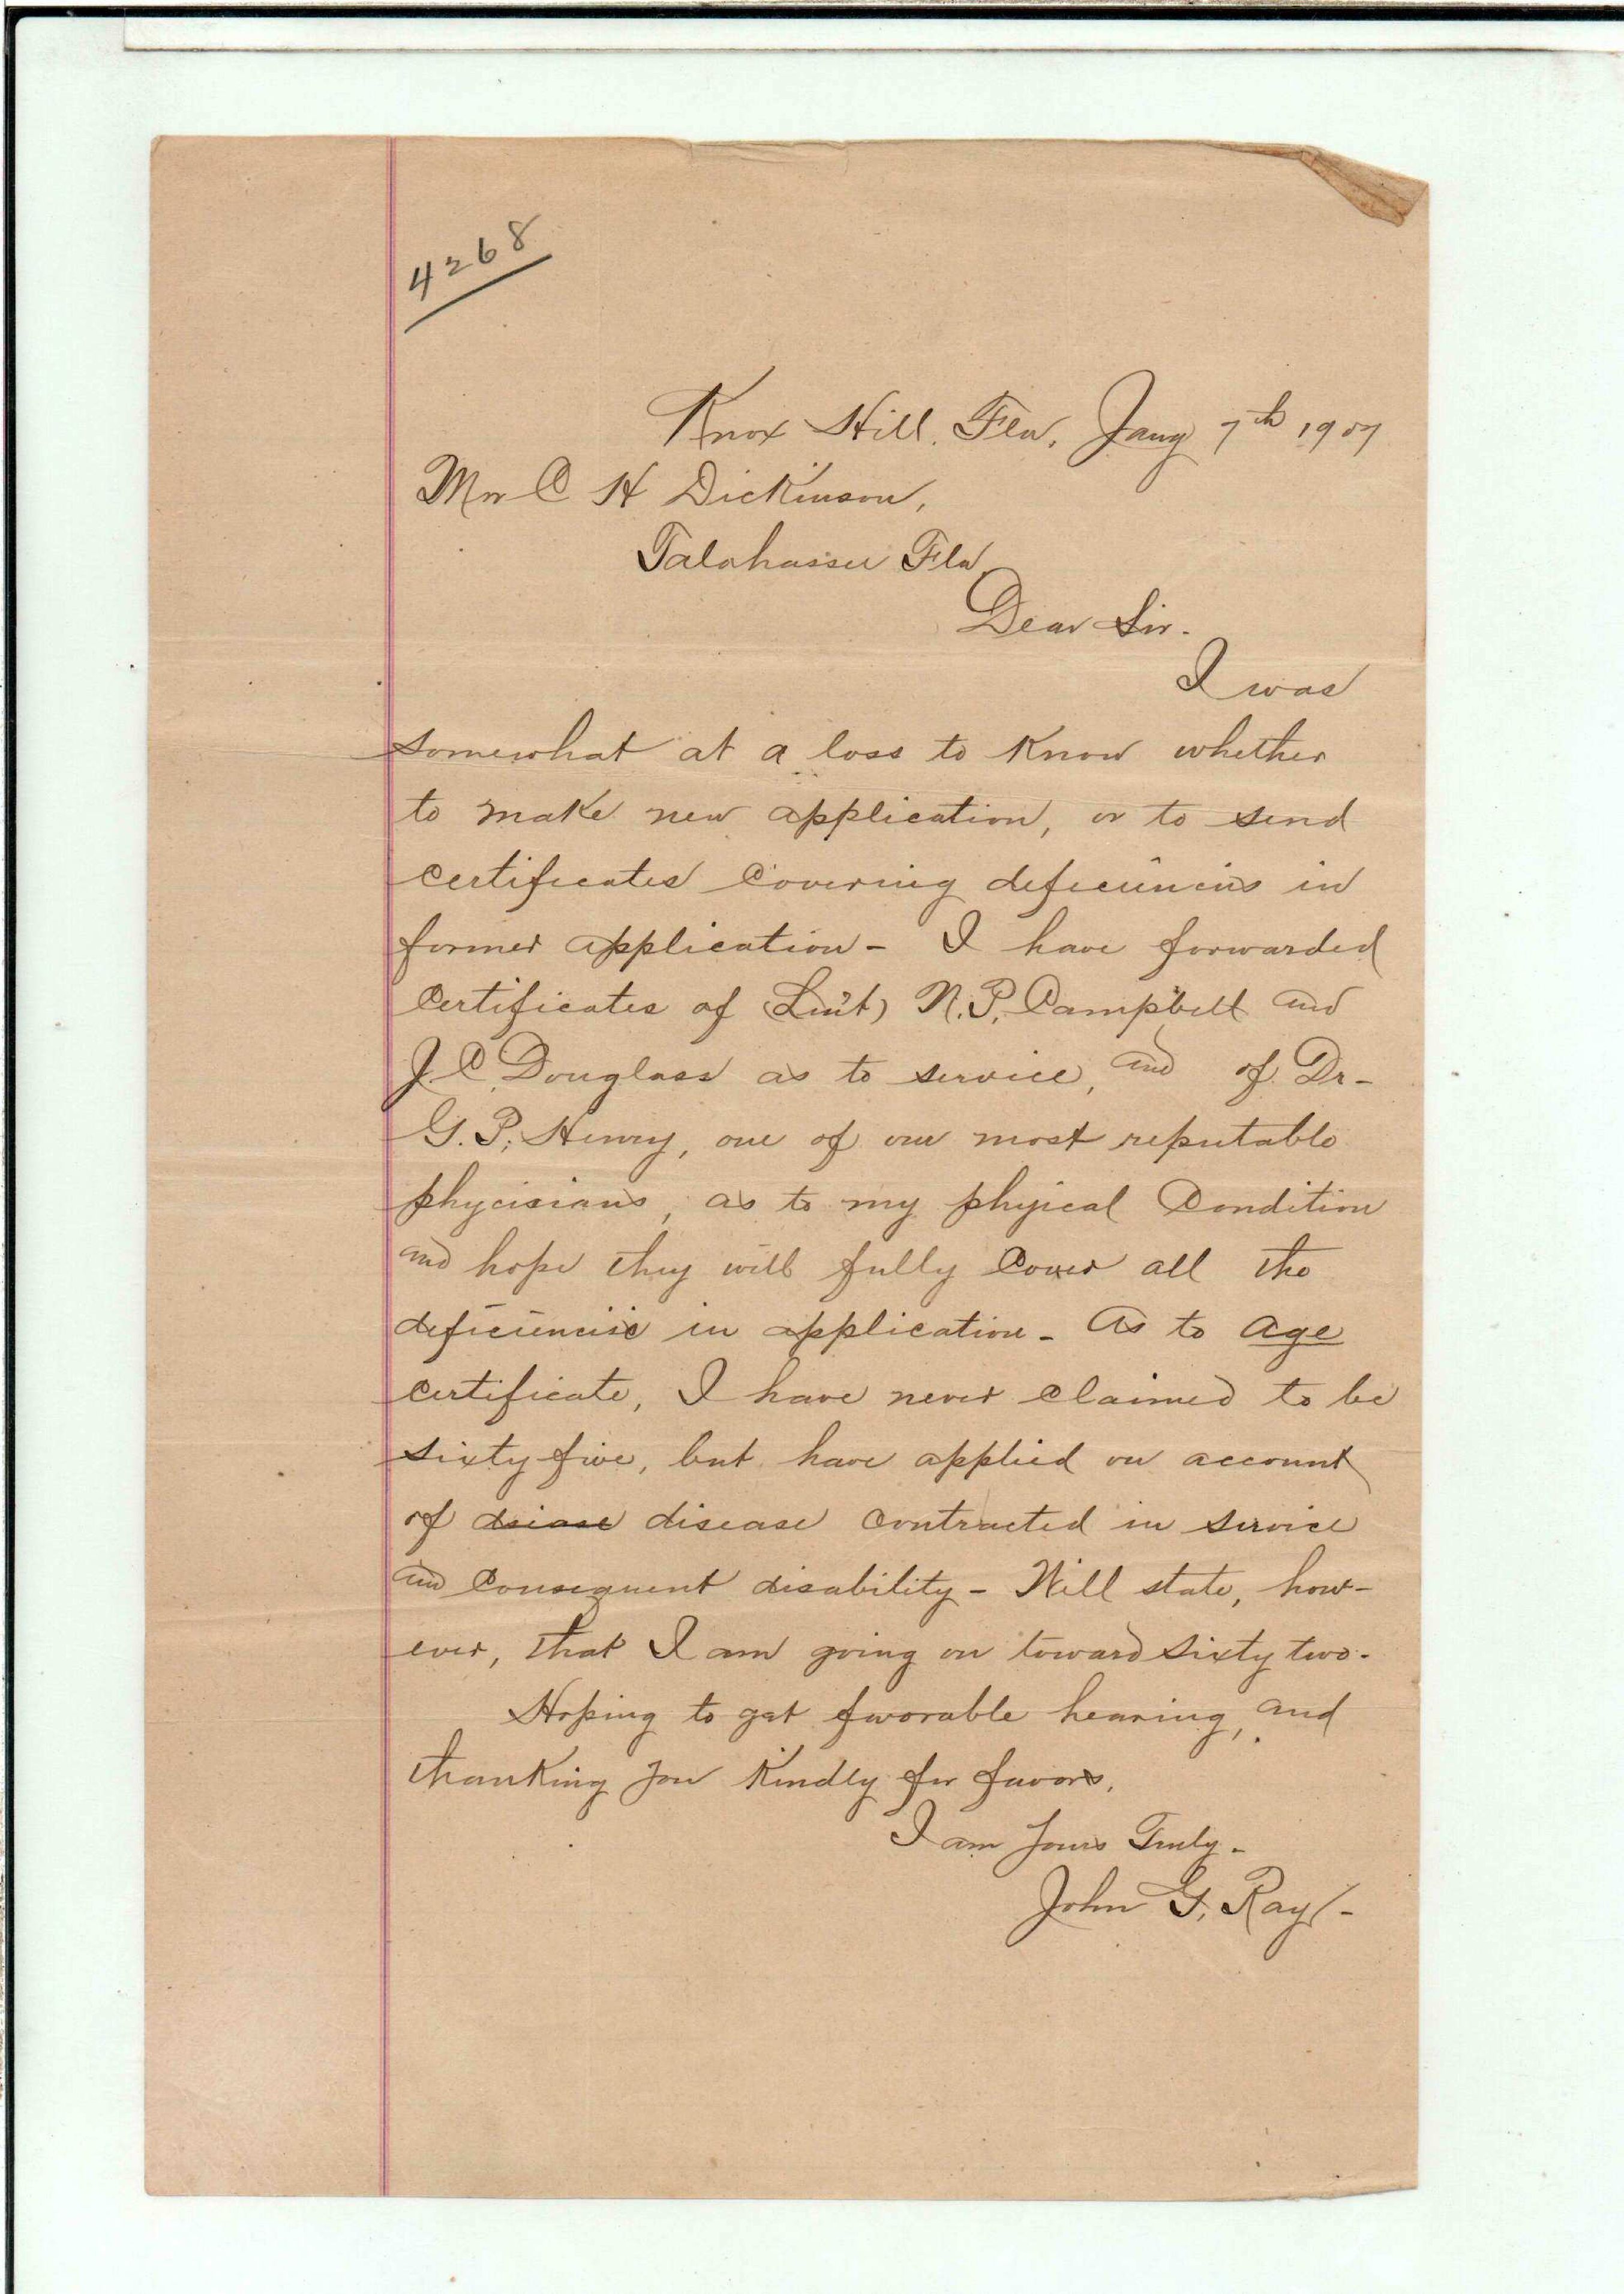 4268
Knox Hill, Fla. Jany 7th 1907
Mr C H Dickinson,
Talahassee Fla
Dear Sir.
I was
somewhat at a loss to know whether
to make new application, or to send
certificates covering deficiencies in
former application - I have forwarded
certificates of (Lieut) N. P. Campbell and
J. C. Douglass as to service, and of Dr-
G. P. Henry, one of our most reputable
phycisians, as to my phyical condition
and hope they will fully cover all the
deficiencies in application - As to age
certificate, I have never claimed to be
sixty five, but have applied on account
of dsiase disease contracted in service
and consequent disability - Will state, how-
ever, that I am going on toward sixty two.
Hoping to get favorable hearing, and
thanking you kindly for favors,
I am yours Truly -
John G. Ray -